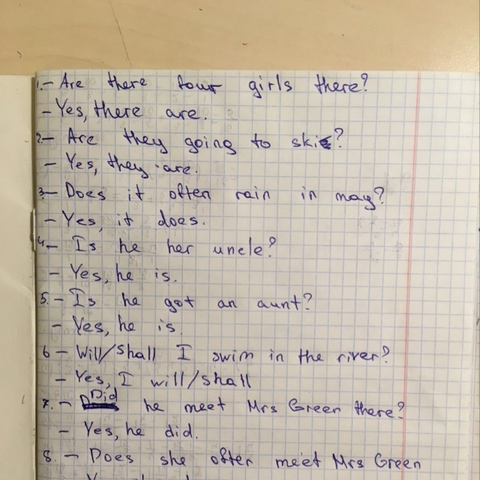 1. - Are there four girls there?
- Yes, there are.
2. - Are they going to ski?
- Yes, they are.
3. - Does it often rain in may?
- Yes, it does.
4. - Is he her uncle?
- Yes, he is.
5. - Is he got an aunt?
- Yes, he is.
6 - Will/shall I swim in the river?
- Yes, I will/shall
7. - Did he meet Mrs Green there?
- Yes, he did.
8. - Does she often meet Mrs Green